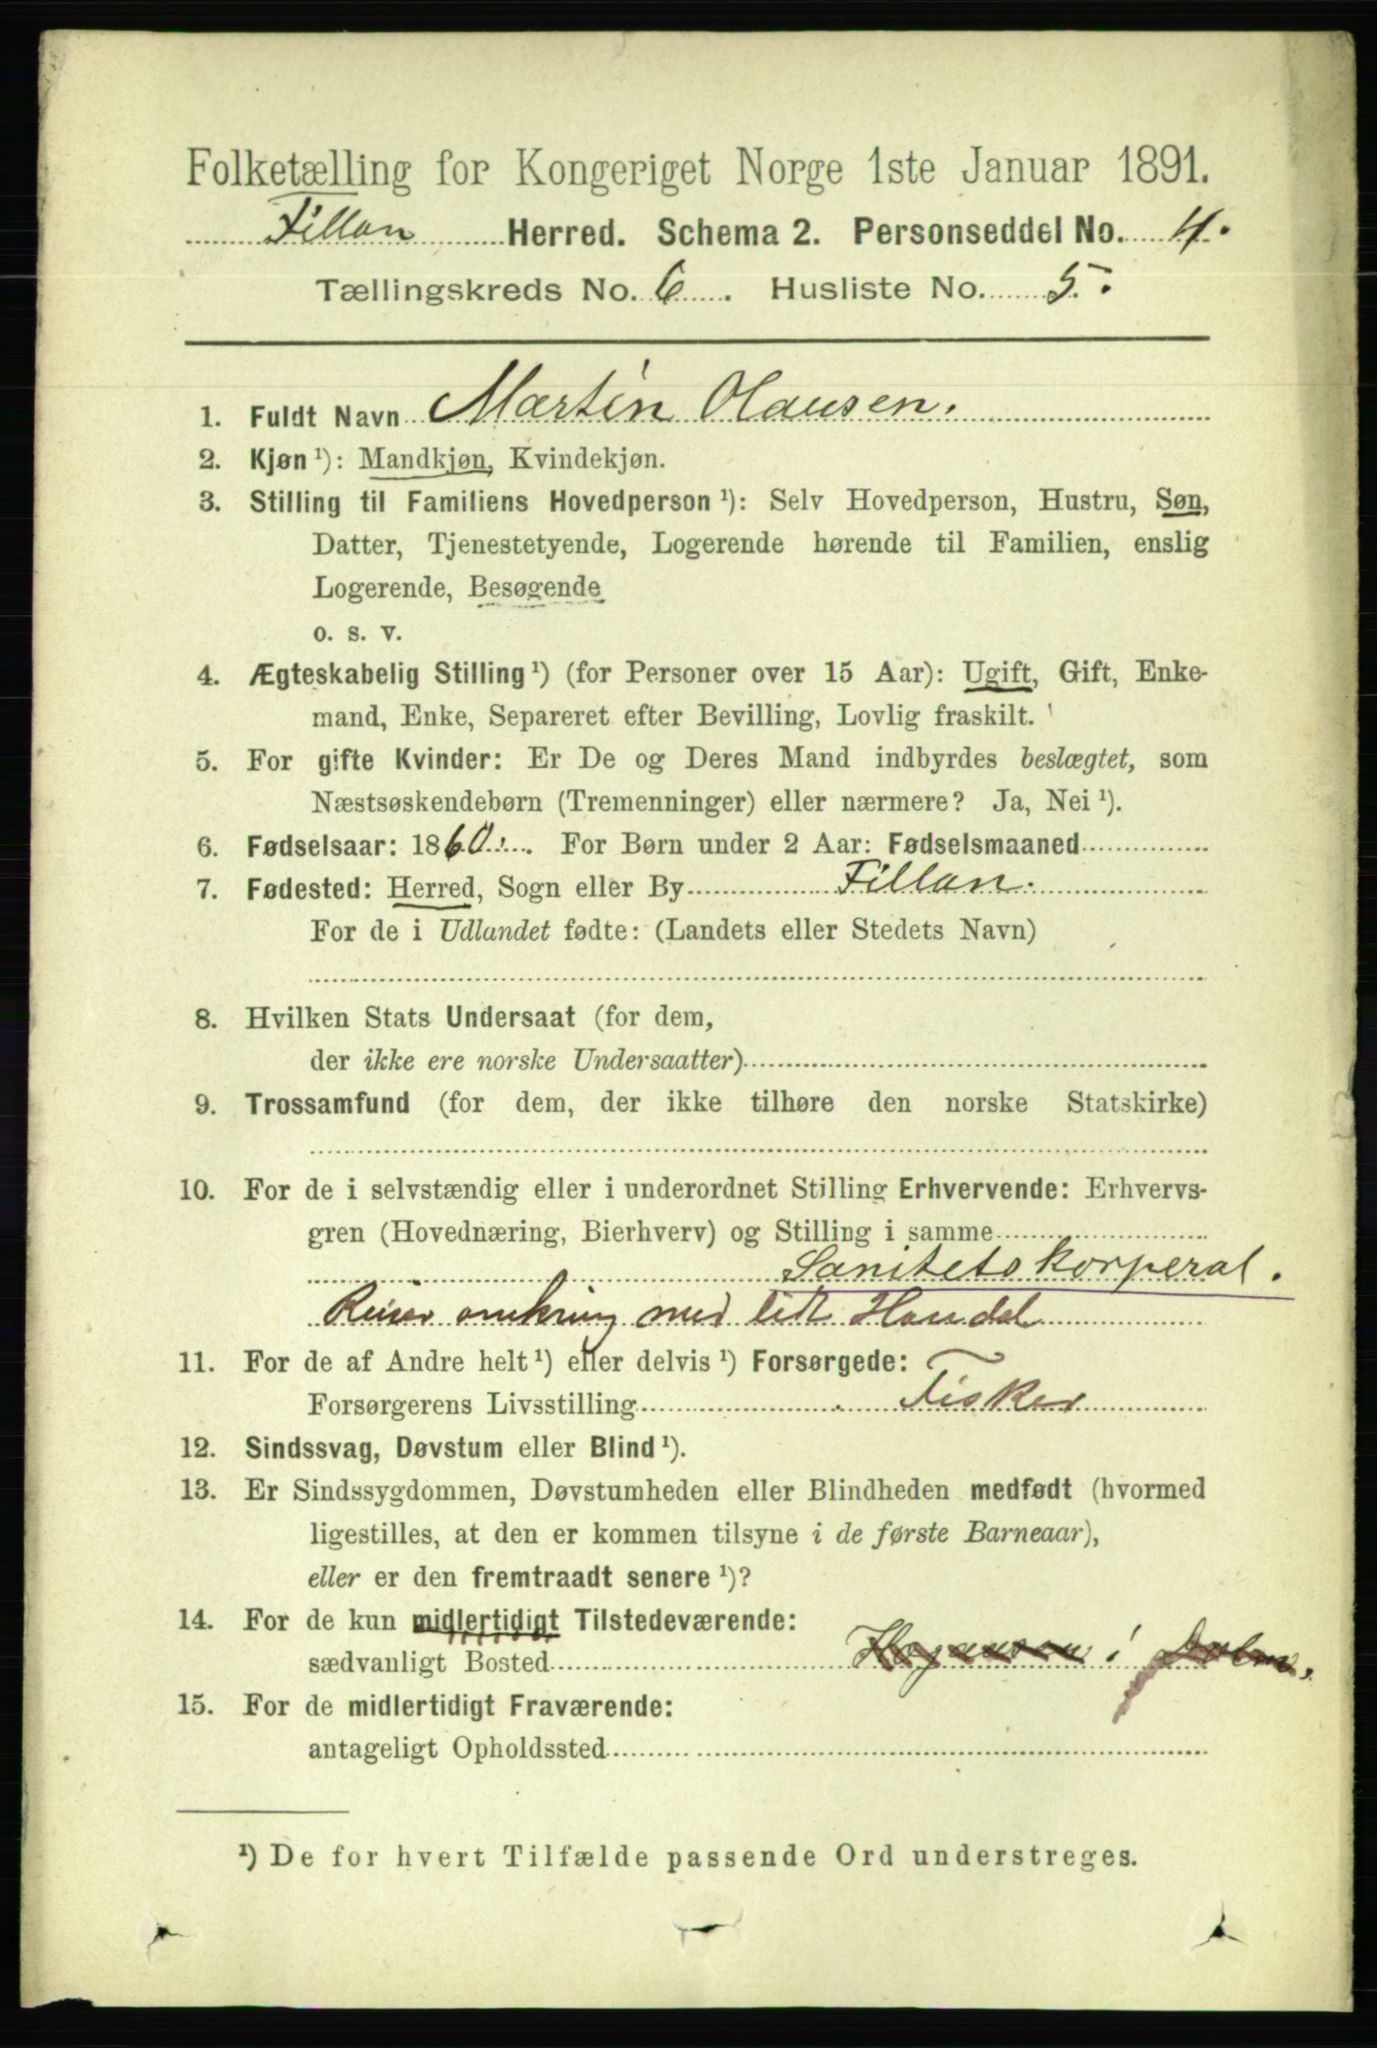 Folketælling for Kongeriget Norge 1ste Januar 1891.
Fillan Herred. Schema 2. Personseddel No. 4.
Tællingskreds No. 6. Husliste No. 5.
1. Fuldt Navn Martin Olausen.
2. Kjøn ¹): Mandkjøn, Kvindekjøn.
3. Stilling til Familiens Hovedperson ¹): Selv Hovedperson, Hustru, Søn,
Datter, Tjenestetyende, Logerende hørende til Familien, enslig
Logerende, Besøgende
o. s. v.
4. Ægteskabelig Stilling ¹) (for Personer over 15 Aar): Ugift, Gift, Enke-
mand, Enke, Separeret efter Bevilling, Lovlig fraskilt.
5. For gifte Kvinder: Er De og Deres Mand indbyrdes beslægtet, som
Næstsøskendebørn (Tremenninger) eller nærmere? Ja, Nei ¹).
6. Fødselsaar: 1860. For Børn under 2 Aar: Fødselsmaaned
7. Fødested: Herred, Sogn eller By Fillan.
For de i Udlandet fødte: (Landets eller Stedets Navn)
8. Hvilken Stats Undersaat (for dem,
der ikke ere norske Undersaatter)
9. Trossamfund (for dem, der ikke tilhøre den norske Statskirke)
10. For de i selvstændig eller i underordnet Stilling Erhvervende: Erhvervs-
gren (Hovednæring, Bierhverv) og Stilling i samme
Sanitetskorperal.
Reiser omkring med lidt Handel
11. For de af Andre helt ¹) eller delvis ¹) Forsørgede:
Forsørgerens Livsstilling Fisker
12. Sindssvag, Døvstum eller Blind ¹).
13. Er Sindssygdommen, Døvstumheden eller Blindheden medfødt (hvormed
ligestilles, at den er kommen tilsyne i de første Barneaar),
eller er den fremtraadt senere ¹)?
14. For de kun midlertidigt Tilstedeværende:
sædvanligt Bosted i
15. For de midlertidigt Fraværende:
antageligt Opholdssted
¹) De for hvert Tilfælde passende Ord understreges.